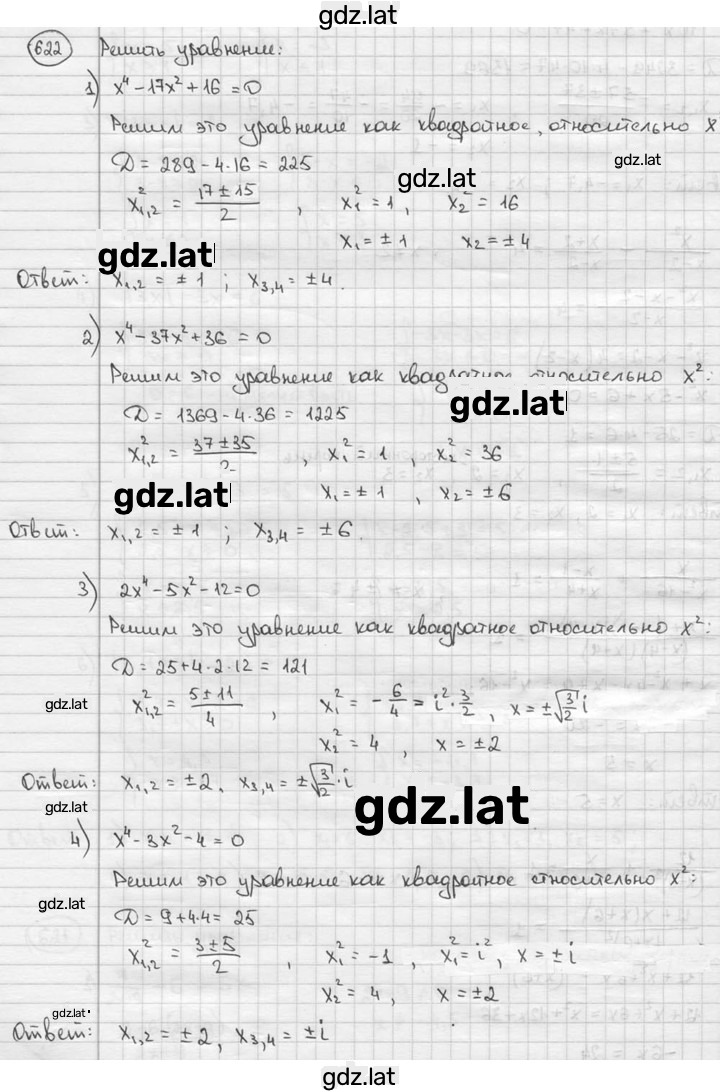 gdz.lat
622 Решить уравнение:
1) x⁴ - 17x² + 16 = 0
Решим это уравнение как квадратное, относительно x
D = 289 - 4·16 = 225
gdz.lat
x²₁,₂ = (17 ± 15)/2 , x₁² = 1, x₂² = 16
gdz.lat
x₁ = ± 1 x₂ = ± 4
gdz.lat
Ответ: x₁,₂ = ± 1 ; x₃,₄ = ± 4.
2) x⁴ - 37x² + 36 = 0
Решим это уравнение как относительно x²:
gdz.lat
D = 1369 - 4·36 = 1225
x²₁,₂ = (37 ± 35)/2 , x₁² = 1 , x₂² = 36
gdz.lat
x₁ = ± 1 , x₂ = ± 6
Ответ: x₁,₂ = ± 1 ; x₃,₄ = ± 6.
3) 2x⁴ - 5x² - 12 = 0
Решим это уравнение как квадратное относительно x²:
D = 25 + 4·2·12 = 121
gdz.lat
x²₁,₂ = (5 ± 11)/4 , x₁² = - 6/4 = i²·3/2 , x = ±√(3/2) i
x₂² = 4 , x = ± 2
Ответ: x₁,₂ = ± 2, x₃,₄ = ±√(3/2)·i
gdz.lat
gdz.lat
4) x⁴ - 3x² - 4 = 0
Решим это уравнение как квадратное относительно x²:
gdz.lat
D = 9 + 4·4 = 25
x²₁,₂ = (3 ± 5)/2 , x₁² = -1, x₁² = i², x = ± i
x₂² = 4, x = ± 2
gdz.lat
Ответ: x₁,₂ = ± 2, x₃,₄ = ± i
gdz.lat